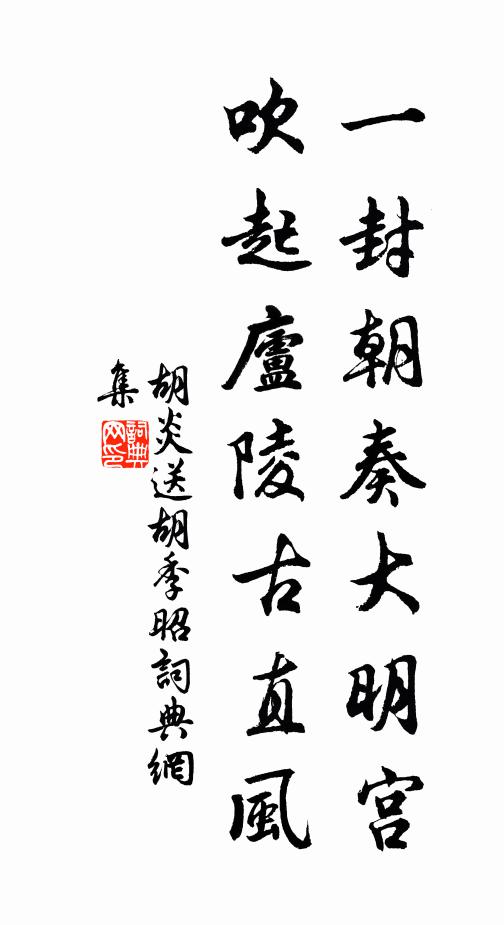 一封朝奏大明宮
吹起廬陵古直風
胡炎送胡季昭詞典網
集
詞典
网印